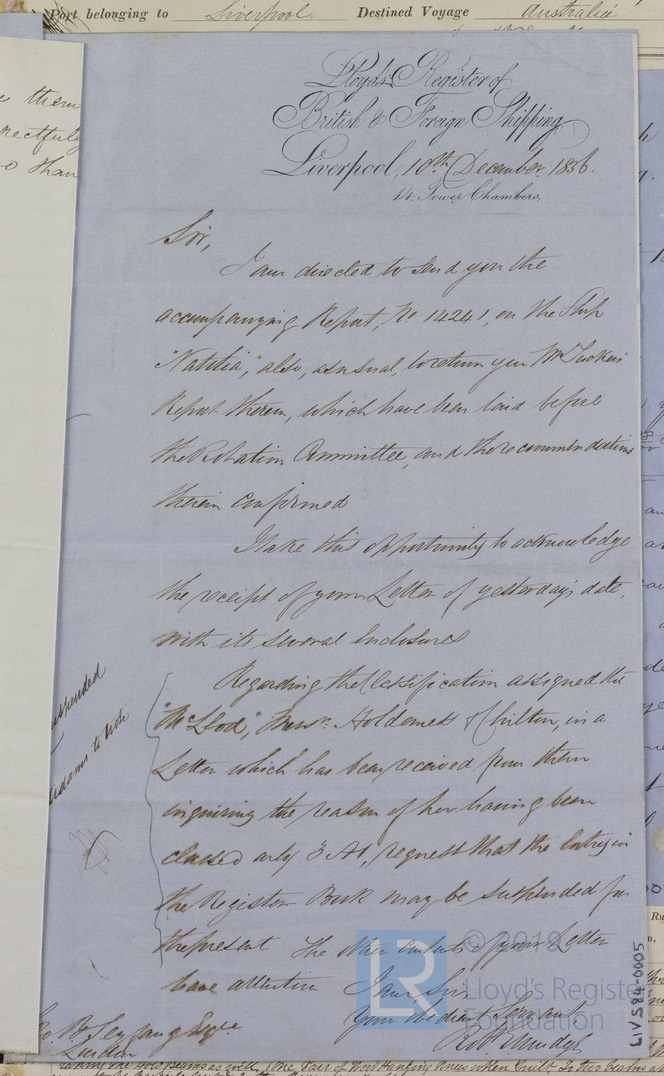 Port belonging to Liverpool Destined Voyage Australia
Lloyd's Register of
British & Foreign Shipping
Liverpool, 10th December 1856.
14 Tower Chambers,
Sir,
I am directed to send you the
accompanying Report, No. 14241, on the Ship
also, as usual, to return you Mr Tucker's
Report thereon, which have been laid before
the Rotation Committee, and the recommendations
therein confirmed
I take this opportunity to acknowledge
the receipt of your Letter of yesterday's date,
with its several Enclosures
Regarding the Classification assigned the
Messrs. & Chilton, in a
Letter which has been received from them
inquiring the reason of her having been
classed only 3 A1, request that the Entry in
the Register Book may be suspended for
the present The other contents of your Letter
have attention I am, Sir,
Your Obedient Servant,
Seyfang Esqre
London
them
than
suspended
to note
© 2019
LR
Lloyd's Register
Foundation
LIV584-0005